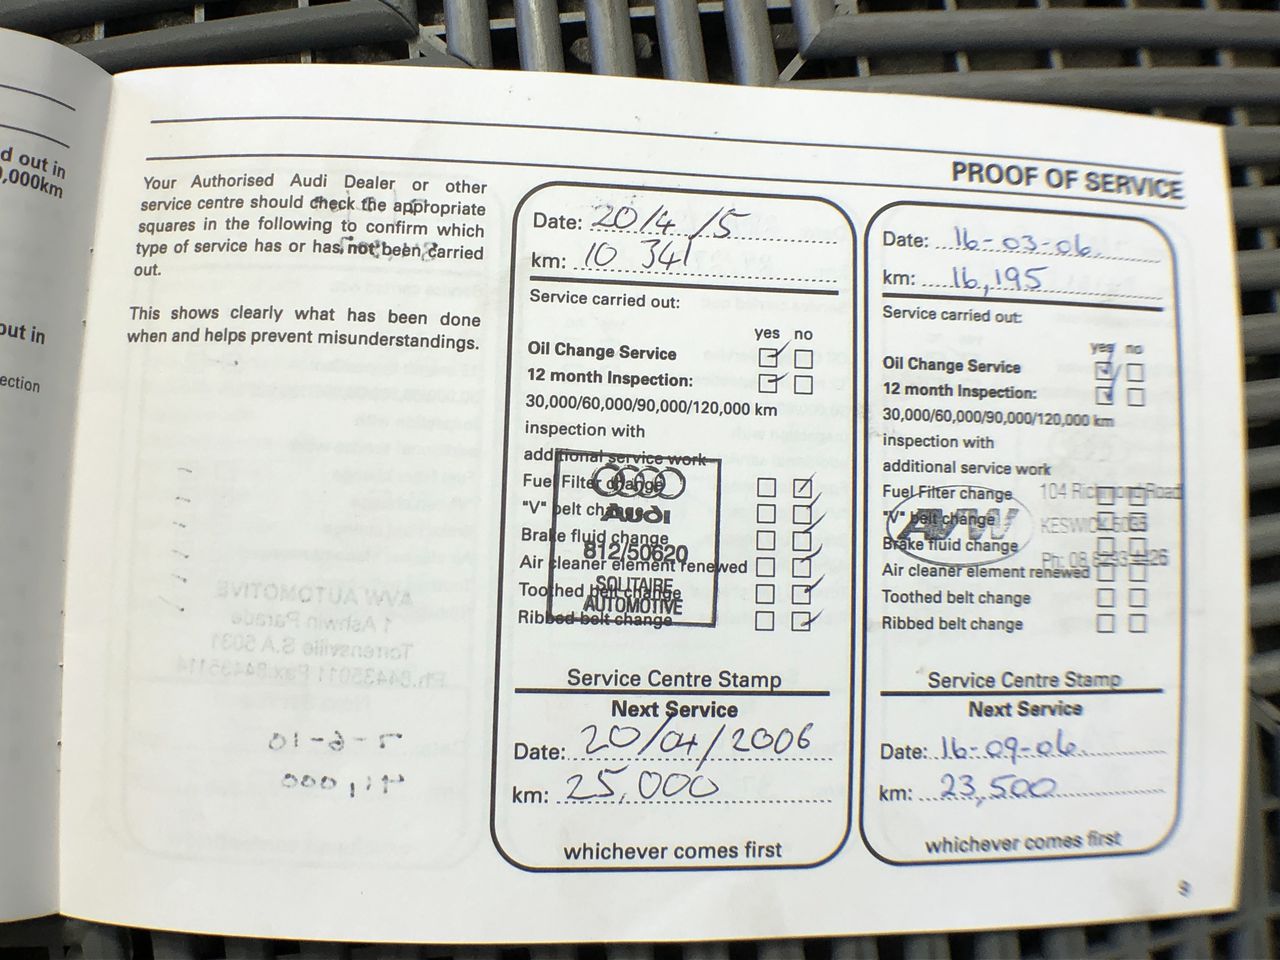 d out in
0,000km
out in
ection
PROOF OF SERVICE
Your Authorised Audi Dealer or other
service centre should check the appropriate
squares in the following to confirm which
type of service has or has not been carried
out.
This shows clearly what has been done
when and helps prevent misunderstandings.
Date: 20/4/5
km: 10 341
Service carried out:
yes no
Oil Change Service
12 month Inspection:
30,000/60,000/90,000/120,000 km
inspection with
additional service work
Fuel Filter change
"V" belt change
Brake fluid change
Air cleaner element renewed
Toothed belt change
Ribbed belt change
Audi
812/50620
SOLITAIRE
AUTOMOTIVE
Service Centre Stamp
Next Service
Date: 20/04/2006
km: 25,000
whichever comes first
Date: 16-03-06
km: 16,195
Service carried out:
yes no
Oil Change Service
12 month Inspection:
30,000/60,000/90,000/120,000 km
inspection with
additional service work
Fuel Filter change
"V" belt change
Brake fluid change
Air cleaner element renewed
Toothed belt change
Ribbed belt change
AVW
104 Richmond Road
KESWICK 5035
Ph: 08
Service Centre Stamp
Next Service
Date: 16-09-06
km: 23,500
whichever comes first
9
AVW AUTOMOTIVE
1 Ashwin Parade
Torrensville S.A 5031
Ph.84435011 Fax 84435114